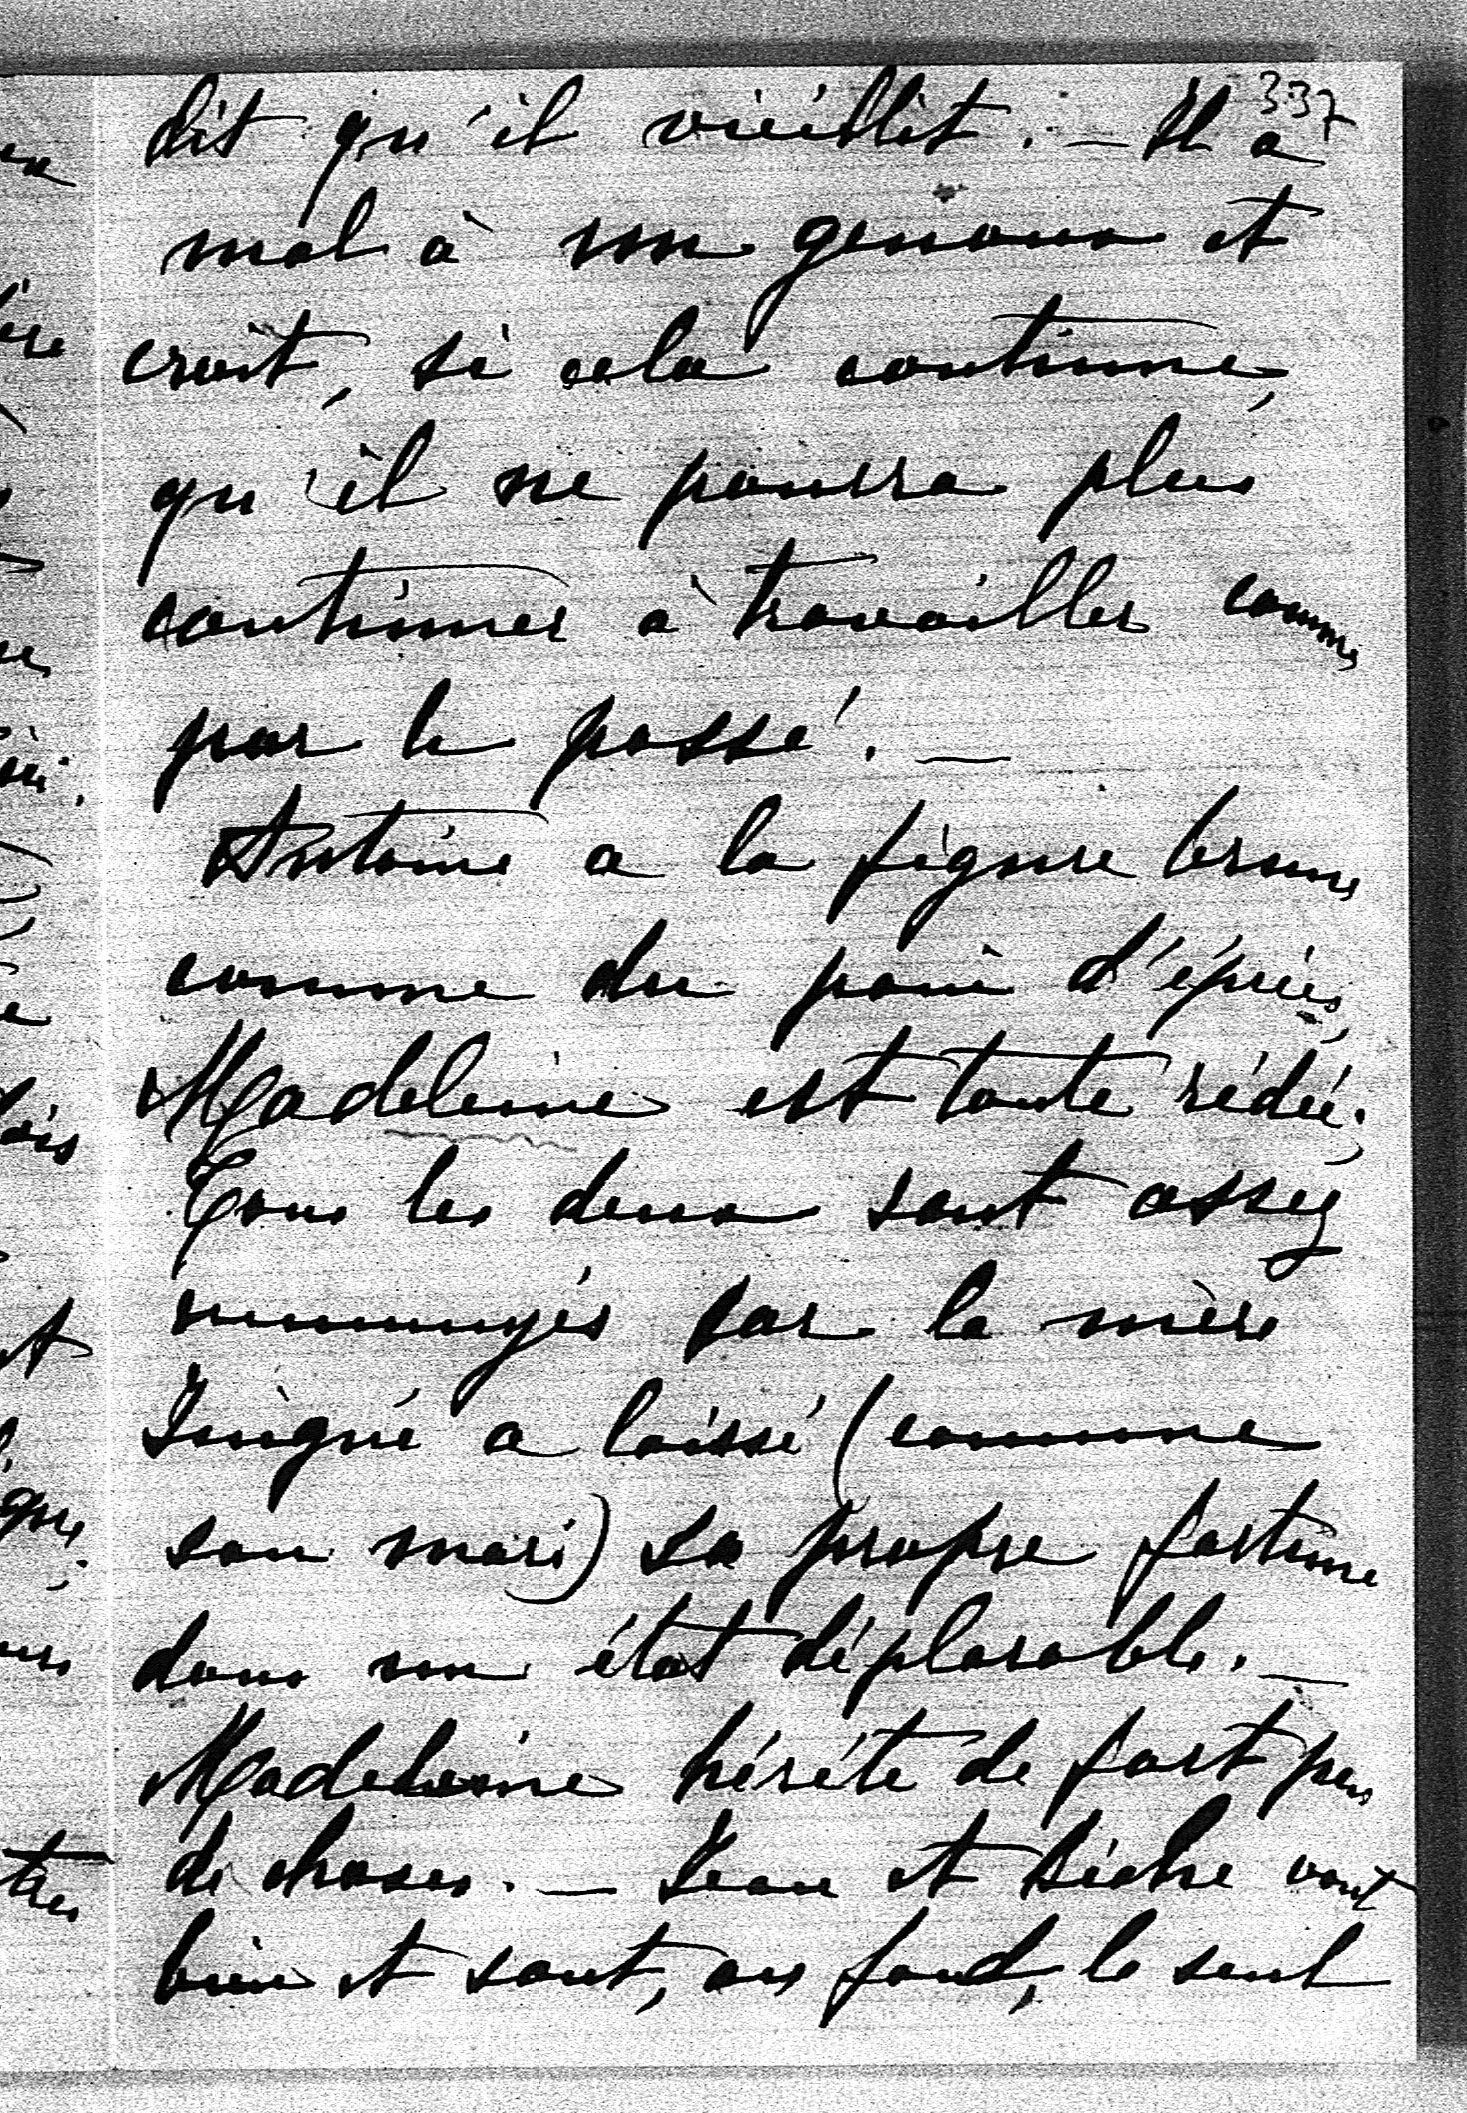 337
dit qu'il vieillit. — Il a
mal à un genoux et
croit, si cela continue,
qu'il ne pourra plus
continuer à travailler comme
par le passé. —
Antoine a la figure brune
comme du pain d'épice,
Madeleine est toute
Tous les deux sont assez
ennuyés par la mère
a laissé (comme
son mari) sa propre fortune
dans un état déplorable. —
Madeleine hérite de fort peu
de choses. — Jean et vont
bien et sont, au fond, le seul